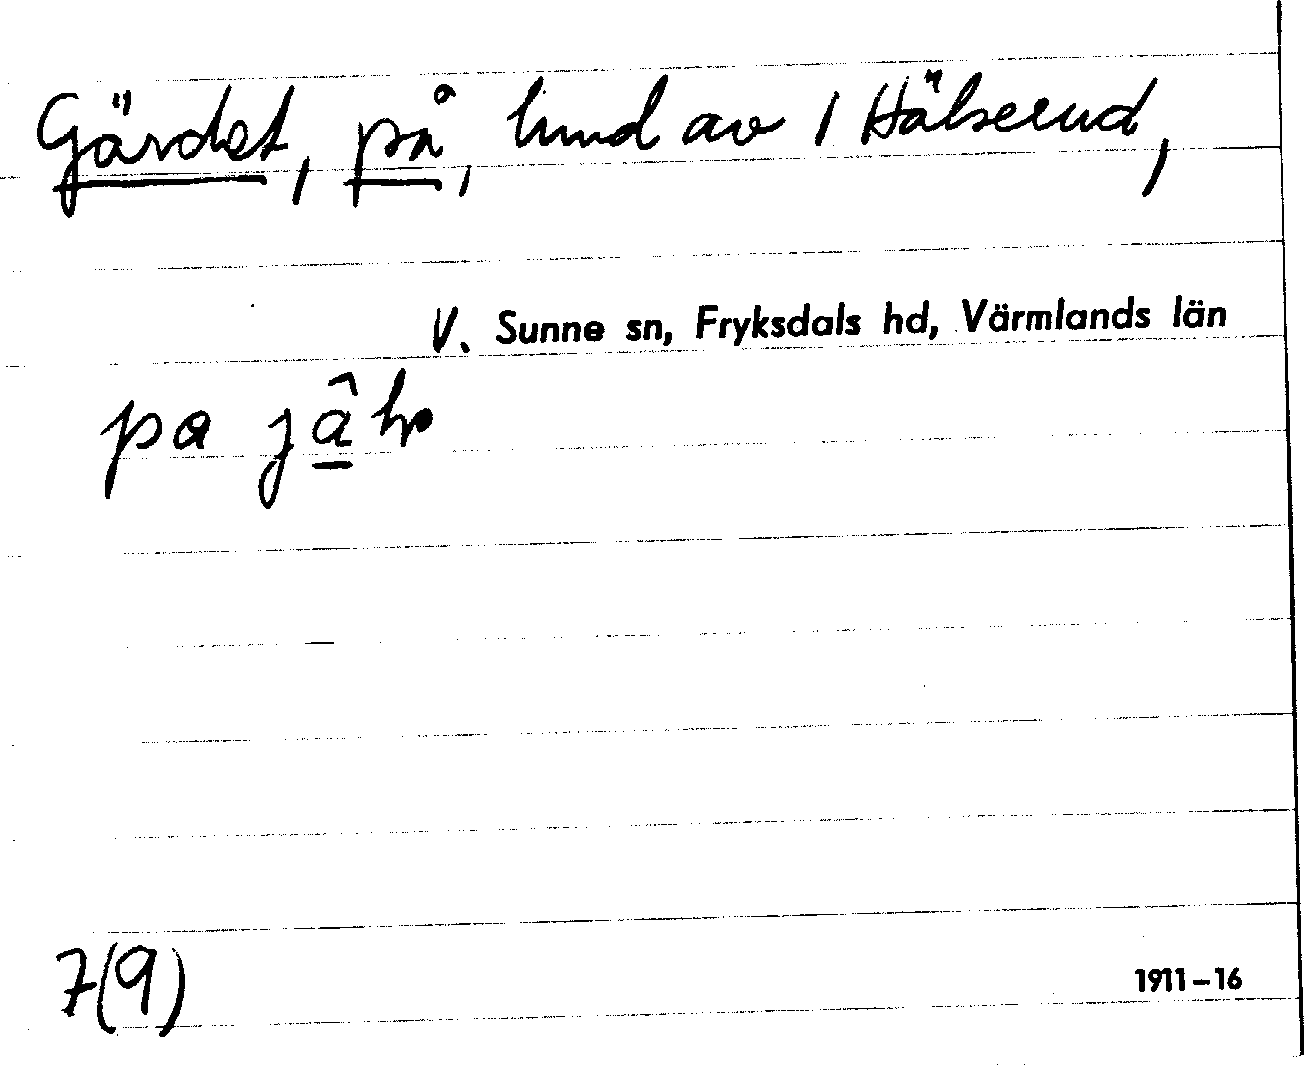 Gärdet, på, lund av 1 Hälserud,
V. Sunne sn, Fryksdals hd, Värmlands län
pa jâ
7(9)
1911–16